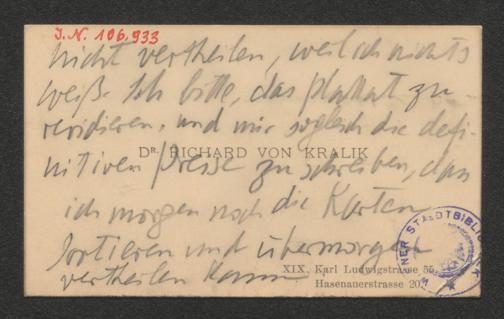 J. N. 106.933
nicht vertheilen, weil ich nichts
weiß. Ich bitte, das Plakat zu
revidieren, und mir sogleich die defi-
DR. RICHARD VON KRALIK
nitiven Preise zu schreiben, dass
ich morgen noch die Karten
sortieren und übermorgen
vertheilen kann
XIX. Karl Ludwigstrasse
Hasenauerstrasse 20
WIENER STADTBIBLIOTHEK